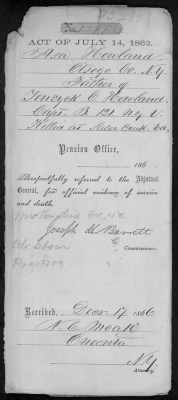 ACT OF JULY 14, 1862.
Asa Howland
Otsego Co. N.Y.
Father of
Teneyck C. Howland
Capt. B 121 N.Y. V
Killed at Sailor Creek Va.
Pension Office,
186
Respectfully referred to the Adjutant
General, for official evidence of service
and death.
Joseph H. Barrett
Commissioner.
Received, Decr 17 1866
N. C. Moak
Oneonta
N.Y.
Attorney.